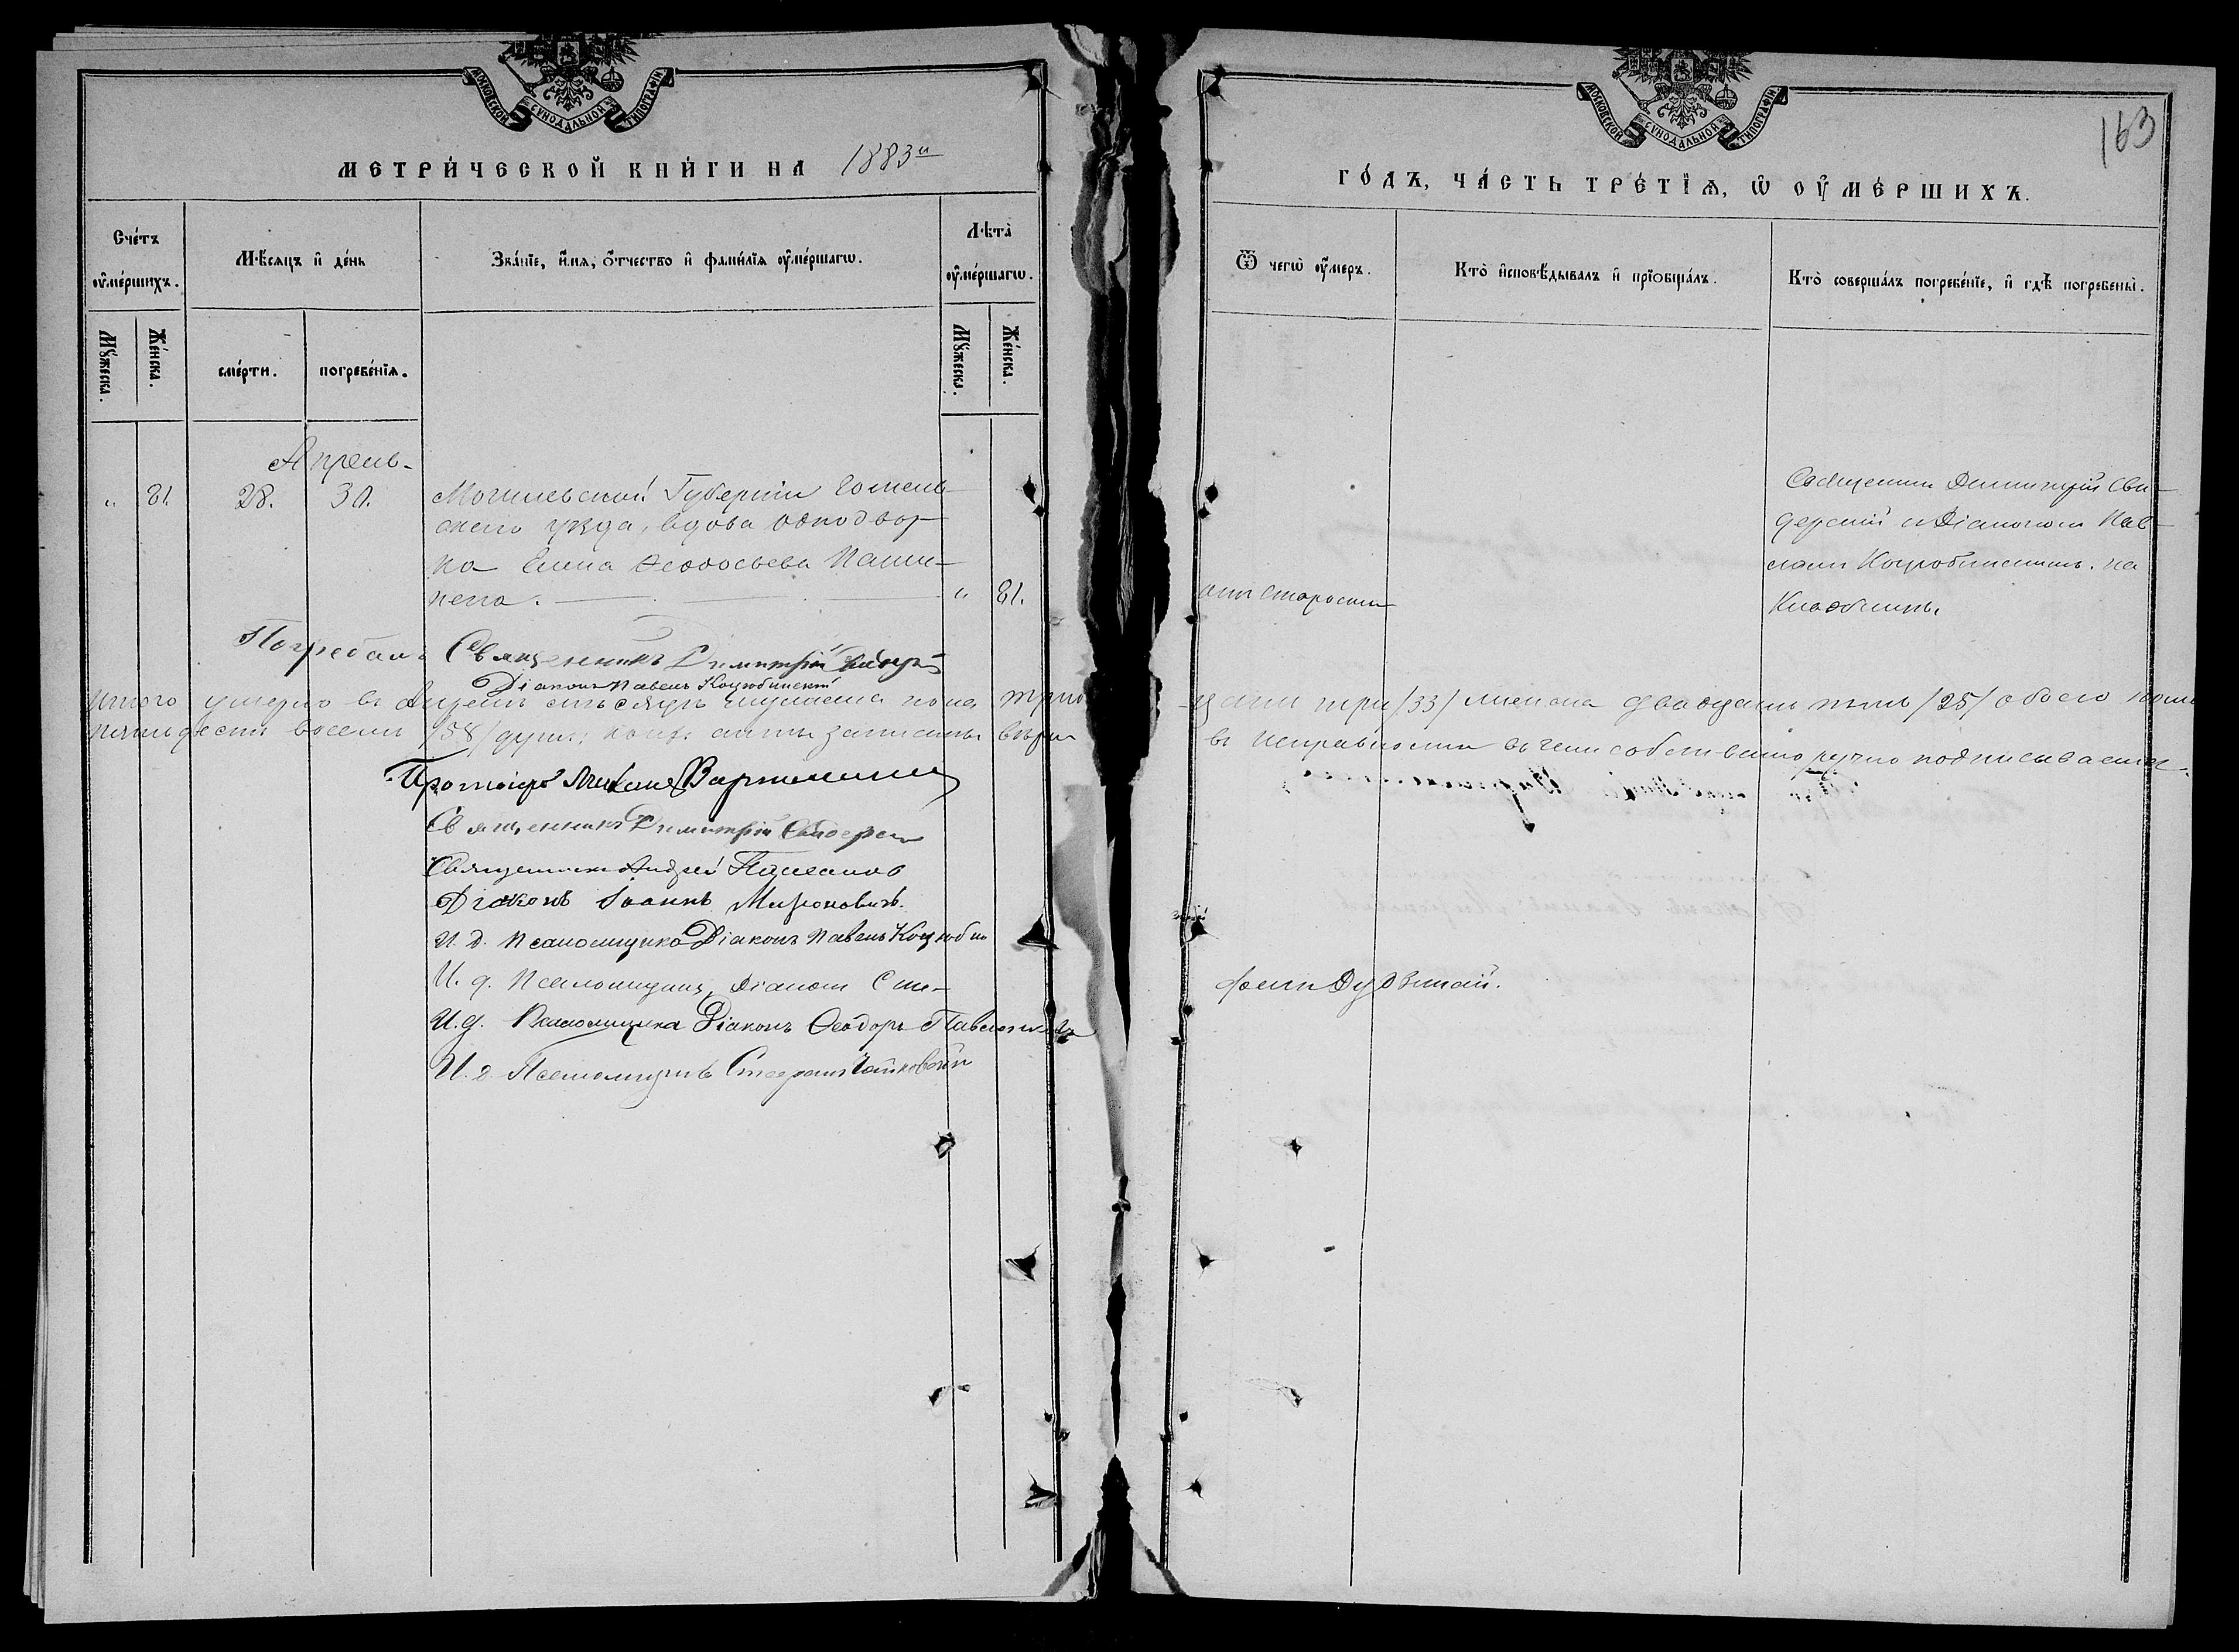 МОСКОВСКОЙ СѴНОДАЛЬНОЙ ТИПОГРАФІИ
МЕТРИ́ЧЕСКОЙ КНИ́ГИ НА 1883й
Сче́тъ ᲂу҆ме́ршихъ.
Мѣ́сяцъ и҆ де́нь
Зва́нїе, и҆́мя, ѻ҆́тчество и҆ фами́лїя ᲂу҆ме́ршагѡ.
Лѣ́та ᲂу҆ме́ршагѡ.
Мꙋ́жеска.
Же́нска.
сме́рти.
погребе́нїя.
Мꙋ́жеска.
Же́нска.
Апрель
" 81. 28. 30. Могилевской Губерніи Гомель-
скаго уѣзда, вдова однодвор-
ка Елена Ѳеодосьева Паши-
нена. " 81.
Погребал. Священникъ Димитрій Свидер
Діаконъ Павелъ Коцюбинскій
Итого умерло въ Апрелѣ мѣсяцѣ мужеска пола трид
пятьдесятъ восемь /58/ душъ; акты записаны вѣрн
Протоіер Михаил
Священникъ Димитрій Свидерск
Священникъ Андрей
Діаконъ Іоаннъ Мироновичъ.
И. д. Псаломщика Діаконъ Павелъ Коцюбин
И. д. Псаломщика, Діаконъ Сте-
И. д. Псаломщика Діаконъ Ѳеодоръ
И. д. Псаломщика Стефанъ
МОСКОВСКОЙ СѴНОДАЛЬНОЙ ТИПОГРАФІИ
163
ГО́ДЪ, ЧА́СТЬ ТРЕ́ТЇѦ, Ѡ҆ ОУ҆МЕ́РШИХЪ.
Ѿ чегѡ̀ ᲂу҆́меръ.
Кто̀ и҆сповѣ́дывалъ и҆ прїѡбща́лъ.
Кто̀ соверша́лъ погребе́нїе, и҆ гдѣ̀ погребены̀.
отъ старости
Священникъ Димитрій Сви-
дерскій съ Діакономъ Пав-
ломъ Коцюбинскимъ. на
Кладбищѣ.
цать три /33/ женска двадцать пять /25/ обоего пола
въ исправности въ чемъ собственноручно подписываемся.
фанъ